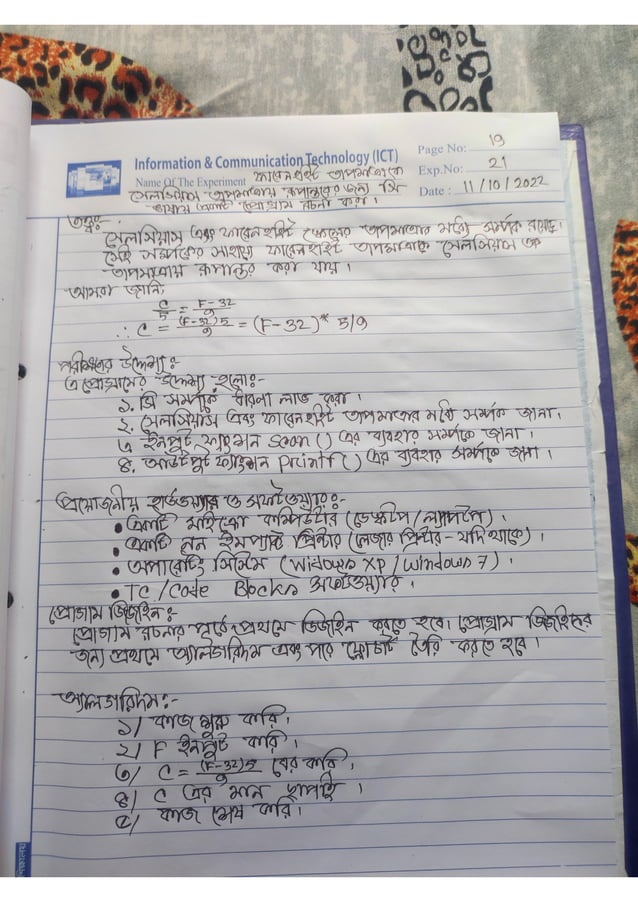 Information & Communication Technology (ICT)
Page No: 19
Exp.No: 21
Date : 11/10/2022
Name Of The Experiment ফারেনহাইট তাপমাত্রাকে
সেলসিয়াস তাপমাত্রায় রূপান্তরের জন্য সি
ভাষায় একটি প্রোগ্রাম রচনা কর।
তত্ত্বঃ
সেলসিয়াস এবং ফারেনহাইট স্কেলের তাপমাত্রার মধ্যে সম্পর্ক রয়েছে।
সেই সম্পর্কের সাহায্যে ফারেনহাইট তাপমাত্রাকে সেলসিয়াস এ
তাপমাত্রায় রূপান্তর করা যায়।
আমরা জানি,
C/5 = F-32/9
∴ C = (F-32)5/9 = (F-32)* 5/9
পরীক্ষণের উদ্দেশ্য :
এ প্রোগ্রামের উদ্দেশ্য হলোঃ-
১. সি সম্পর্কে ধারণা লাভ করা।
২. সেলসিয়াস এবং ফারেনহাইট তাপমাত্রার মধ্যে সম্পর্ক জানা।
৩. ইনপুট ফাংশন scan() এর ব্যবহার সম্পর্কে জানা।
৪. আউটপুট ফাংশন printf() এর ব্যবহার সম্পর্কে জানা।
প্রয়োজনীয় হার্ডওয়্যার ও সফটওয়্যারঃ-
• একটি মাইক্রো কম্পিউটার (ডেস্কটপ/ল্যাপটপ)।
• একটি নন ইমপ্যাক্ট প্রিন্টার (লেজার প্রিন্টার - যদি থাকে)।
• অপারেটিং সিস্টেম (Widows XP / Windows 7)।
• TC /Code Blocks সফটওয়্যার।
প্রোগ্রাম ডিজাইন :
প্রোগ্রাম রচনার পূর্বে প্রথমে ডিজাইন করতে হবে। প্রোগ্রাম ডিজাইনের
জন্য প্রথমে অ্যালগরিদম এবং পরে ফ্লোচার্ট তৈরি করতে হবে।
অ্যালগরিদম:-
১/ কাজ শুরু করি।
২/ F ইনপুট করি।
৩/ C = (F-32)5/9 বের করি।
৪/ C এর মান ছাপাই।
৫/ কাজ শেষ করি।